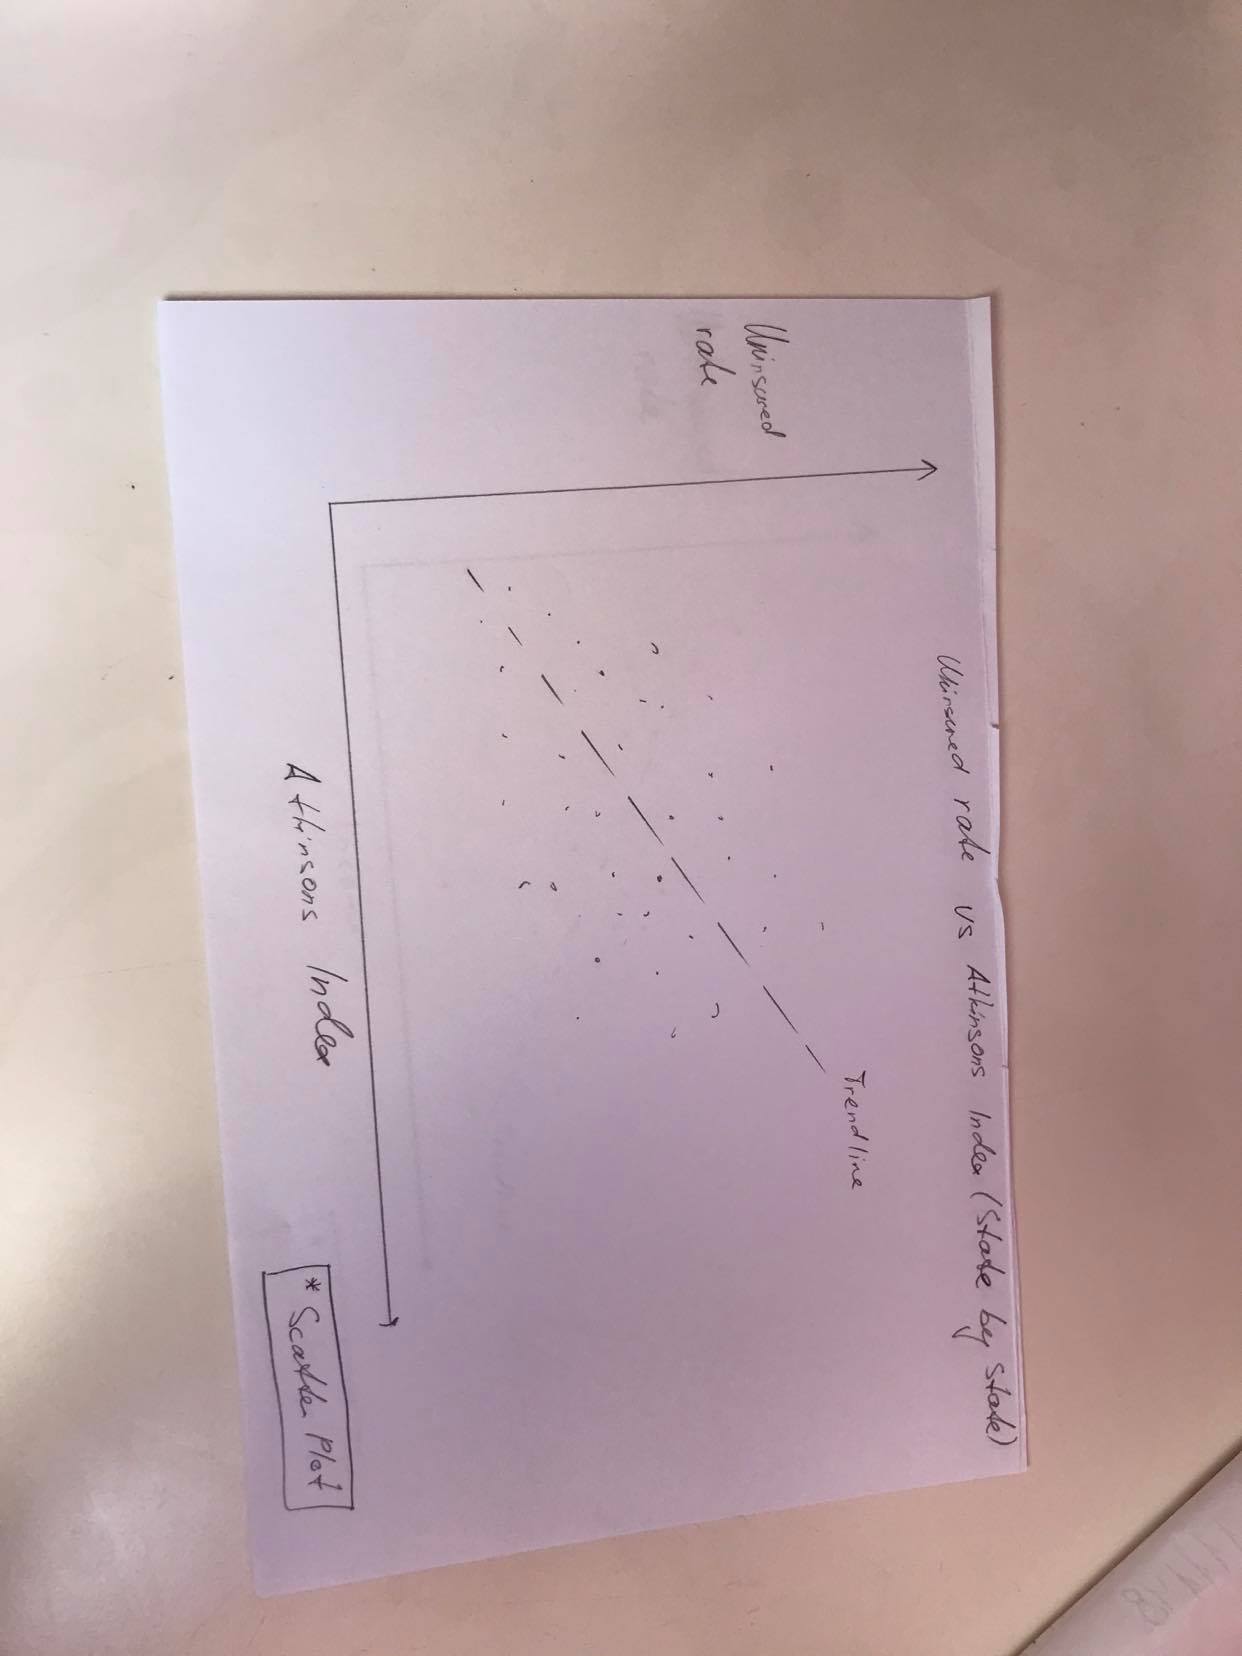 Uninsured rate vs Atkinsons Index (State by State)
Uninsured
rate
Trendline
Atkinsons Index
* Scatter Plot